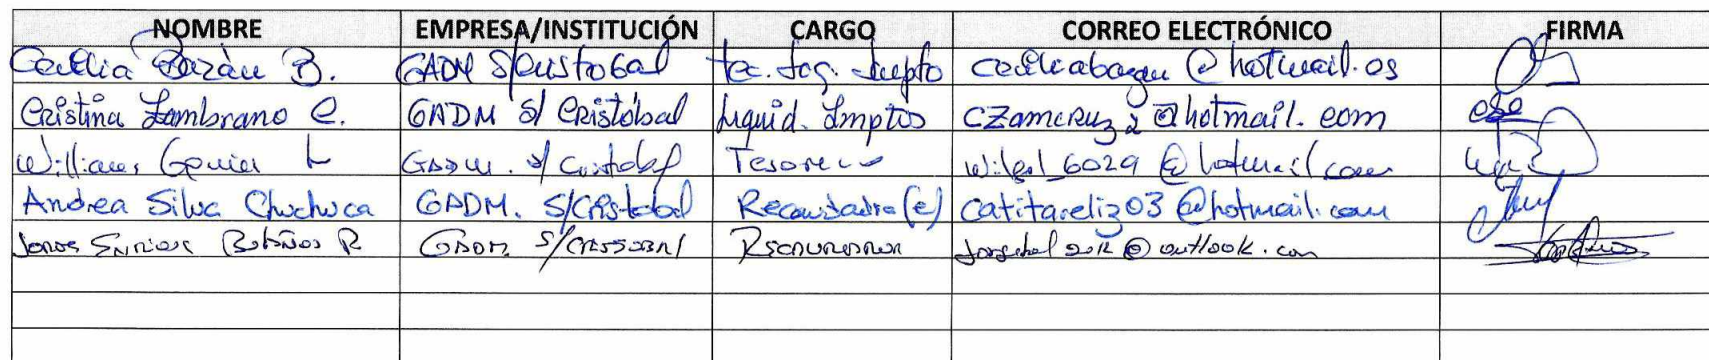 NOMBRE EMPRESA/INSTITUCIÓN CARGO CORREO ELECTRÓNICO FIRMA
Cecilia Bazán B. GADM S/Cristobal tec. @hotmail.es
Cristina Zambrano C. GADM S/ Cristóbal Liquid. Imptos czamcruz2@hotmail.com
GADM. S/ Cristobal Tesorero @hotmail.com
Andrea Silva Chuchuca GADM. S/Cristobal Recaudadora (e) catitareliz03@hotmail.com
Bolaños R GADM. S/CRISTOBAL RECAUDADOR @outlook.com